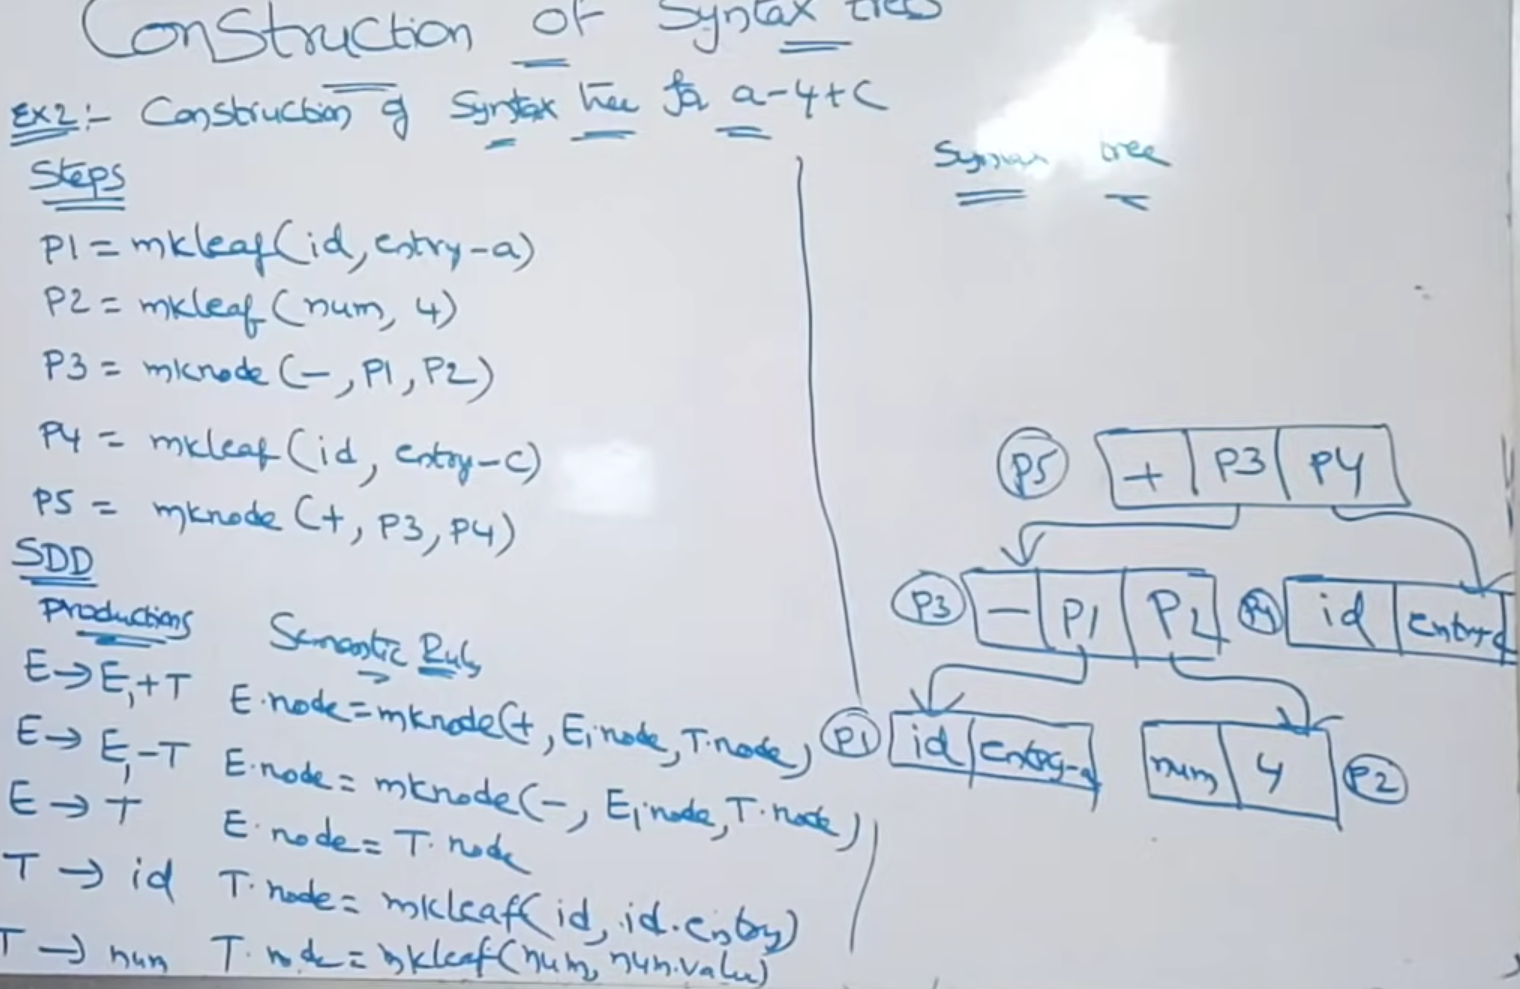 Construction of Syntax trees
Ex2:- Construction of Syntax tree for a-4+c
Steps
P1 = mkleaf(id, entry-a)
P2 = mkleaf(num, 4)
P3 = mknode(-, P1, P2)
P4 = mkleaf(id, entry-c)
P5 = mknode(+, P3, P4)
SDD
Productions Semantic Rules
E→E₁+T E.node=mknode(+, E₁.node, T.node)
E→E₁-T E.node=mknode(-, E₁.node, T.node)
E→T E.node=T.node
T→id T.node=mkleaf(id, id.entry)
T→num T.node=mkleaf(num, num.value)
Syntax tree
P5 + P3 P4
P3 - P1 P2 P4 id entry-c
P1 id entry-a num 4 P2